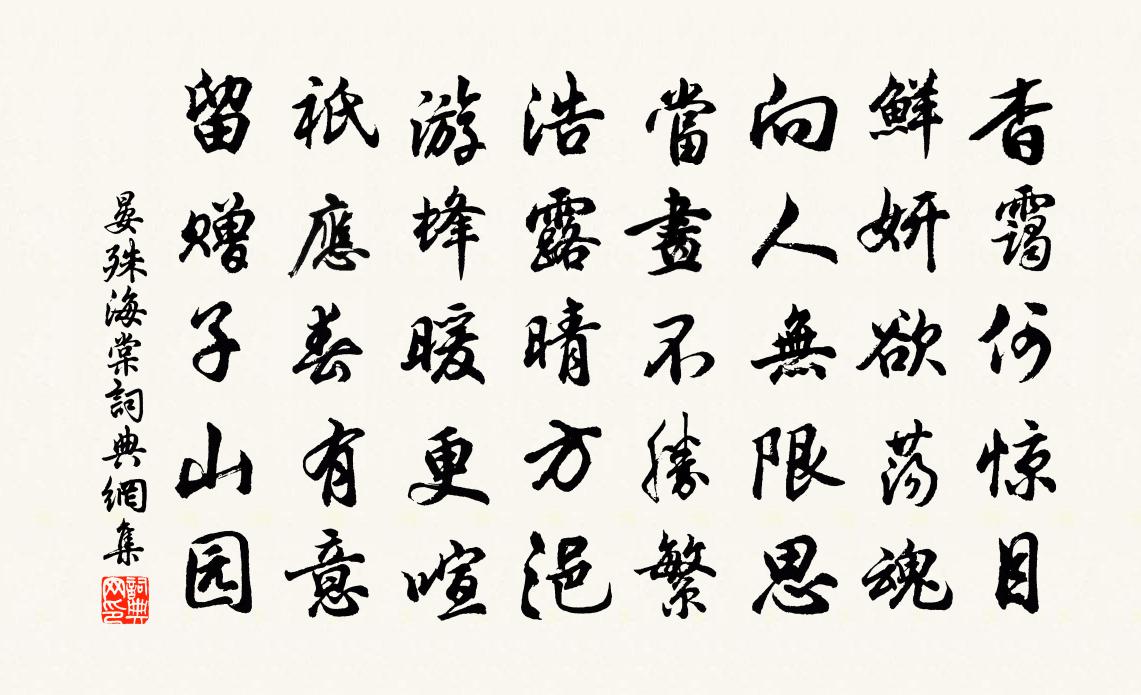 香靄何惊目
鮮妍欲荡魂
向人無限思
當晝不勝繁
浩露晴方浥
游蜂暖更喧
祇應春有意
留赠子山园
晏殊海棠詞典網集
詞典网印